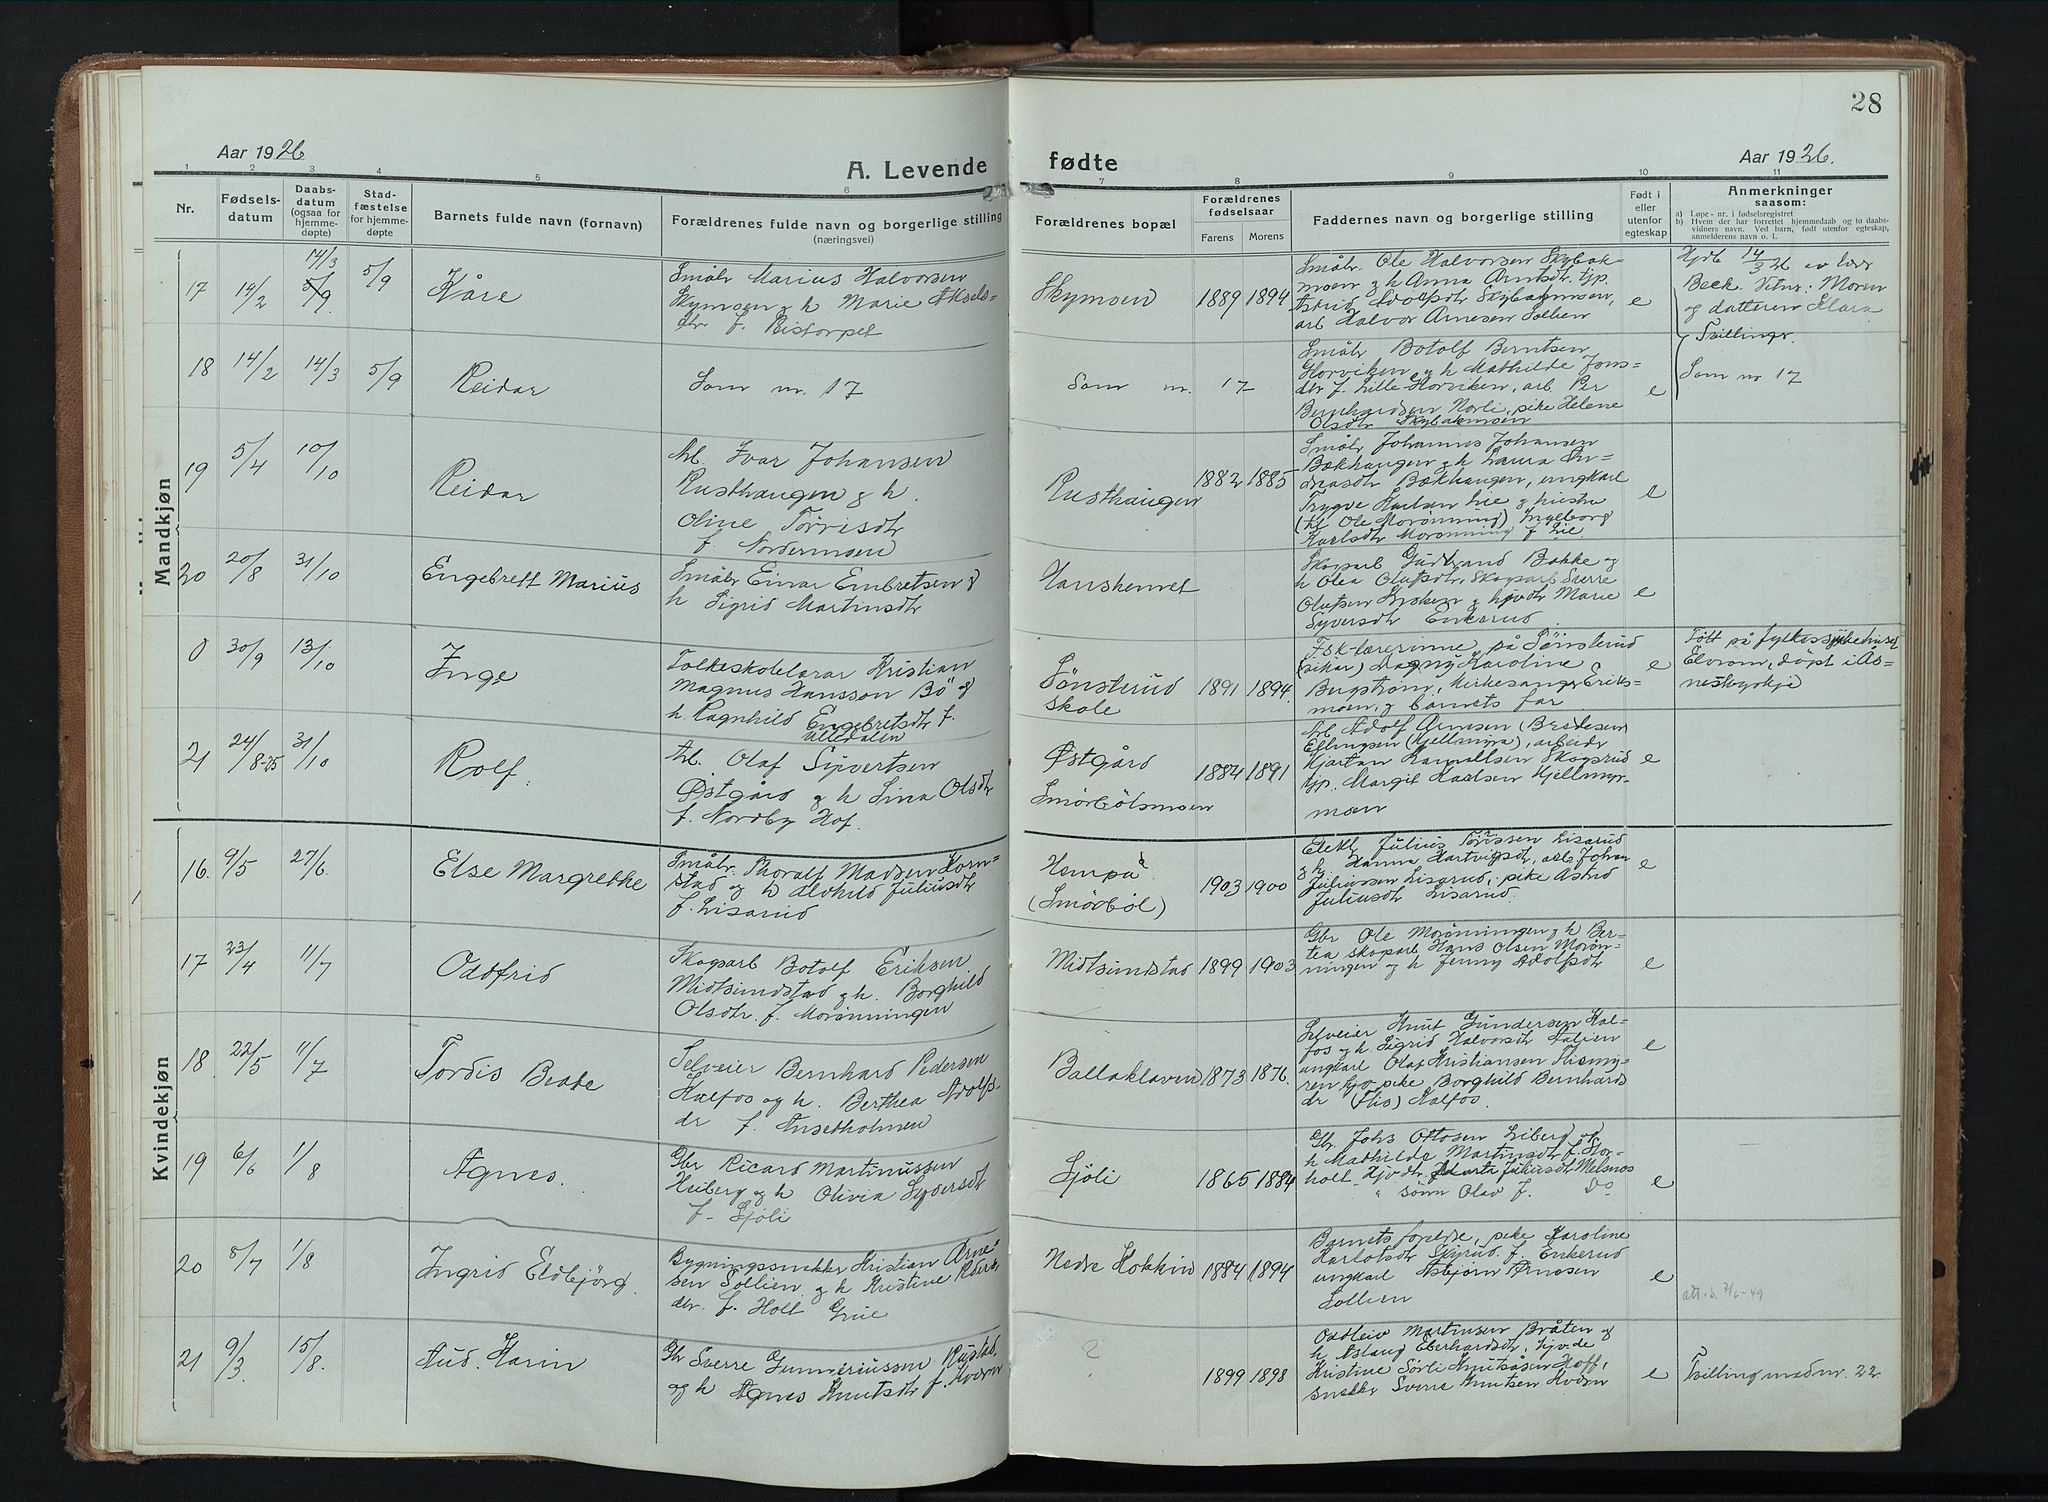 28
Aar 1926
A. Levende fødte
Aar 1926.
1 2 3 4 5 6 7 8 9 10 11
Nr.
Fødselsdatum
Daabsdatum (ogsaa for hjemmedøpte)
Stadfæstelse for hjemmedøpte
Barnets fulde navn (fornavn)
Forældrenes fulde navn og borgerlige stilling (næringsvei)
Forældrenes bopæl
Forældrenes fødselsaar
Farens Morens
Faddernes navn og borgerlige stilling
Født i eller utenfor egteskap
Anmerkninger saasom:
a) Løpe-nr. i fødselsregistret
b) Hvem der har forrettet hjemmedaab og to daabsvidners navn. Ved barn, født utenfor egteskap, anmelderens navn o. l.
Mandkjøn
17 14/2 14/3 5/9 5/9 Kåre
Småbr Marius Halvorsen
Skymoen og h Marie Aksels-
dtr. f.
Skymoen 1889 1894
Småbr. Ole Halvorsen Skybak-
moen og h Anna Arntsdtr, tjp.
Astrid Adolfsdtr Skybakmoen,
arb Halvor Arnesen Sollien
e
Hjdb 14/3 26 av lær
Beck. Vitnr: Moren
og datteren Klara
Tvillinger.
18 14/2 14/3 5/9 Reidar
Som nr. 17
Som nr. 17
Småbr Botolf Berntsen
Horviken og h Mathilde Jons-
dtr f. Lille Horviken, arb Per
Bernhardsen Norli, pike Helene
Olsdtr Skybakmoen
e
Som nr 17
19 5/4 10/10 Reidar
Arb. Ivar Johansen
Rusthaugen og h.
Oline Törrisdtr
f. Nordermoen
Rusthaugen 1882 1885
Småbr Johannes Johansen
Bækhaugen og h Laura An-
dreasdtr Bækhaugen, ungkarl
Trygve Karlsen Lie og hustru
Ole Morønning) Ingeborg
Karlsdtr Morønning f Lie
e
20 20/8 31/10 Engebrett Marius
Småbr Einar Embretsen og
h Sigrid Martinsdtr
Hanskemet
Skogsarb Gudbrand Bakke og
h Olea Olufsdtr, Skogsarb Sverre
Olufsen og hjvdtr Marie
Syversdtr Enkerud
e
0 30/9 13/10 Inge
Folkeskolelærar Kristian
Magnus Hansson Bö og
h. Ragnhild Engebretsdtr f.
Ulledalen
Sönsterud
skole
1891 1894
Fsk-lærerinne på Sønsterud
Magny Karoline
Bergstrøm, kirkesanger Eriks-
moen, og barnets far
e
Født på fylkessykehuset
Elvrom, døpt i Ås-
nesbygkje
21 24/8-25 31/10 Rolf.
Arb. Olaf Sijvertsen
Østgård og h Lina Olsdtr
f. Nordby Hof.
Østgård
Smörbölsmoen
1884 1891
Arb Adolf Arnesen
Eflingsen (Kjellmyra), arbeidr
Kjartan Skogsrud
tjp. Margit Karlsen Kjellmyr-
moen
e
Kvindekjøn
16 9/5 27/6 Else Margrethe
Småbr. Thoralf Madsen Korn-
stad og h Alvhild Juliusdtr
f. Lisarud
Hempå
(Smörböl)
1903 1900
Elekt Julius Tørrissen Lisarud
og h. Hanna Hartvigsdtr, arb Johan
Juliussen Lisarud, pike Astrid
Juliusdtr Lisarud.
e
17 23/4 11/7 Oddfrid
Skogsarb Botolf Eriksen
Midtsundstad og h. Borghild
Olsdtr. f. Morønningen
Midtsundstad 1899 1903
Gbr Ole Morønningen og h Ber-
tea skogsarb Hans Olsen Morøn-
ningen og h Jenny Adolfsdtr
e
18. 22/5 11/7 Tordis Beate
Selveier Bernhard Pedersen
Kalfos og h. Berthea Adolfs-
dr f. Ansetholmen
Ballaklaven 1873 1876.
Selveier Knut Gundersen Kal-
fos og h. Sigrid Halvorsdtr
ungkarl Olaf Kristiansen Flismy-
ren tjp. pike Borghild Bernhards
dr (Flis) Kalfos.
e
19 6/6 1/8 Agnes.
Gbr Ricard Martinussen
Heiberg og h Olivia Syversdtr
f. Sjöli
Sjöli 1865 1884
Gbr Johs Ottosen Liberg og
h Mathilde Martinsdtr f. Stor-
holt Hjv.dtr. Juliusdtr Melsnos
" sønn Olav f. Do
e
20 8/7 1/8 Ingrid Eldbjörg.
Bygningssnekker Kristian Arne-
sen Sollien og h Kristine
dtr. f. Holt Grue
Nedre Hokkin 1884 1894
Barnets forældre, pike Karoline
Karlotsdtr Skjrud f. Enkerud
ungkarl Asbjörn Arnesen
Sollien
e
att. s. 7/6-49
21 9/3 15/8. Aud. Karin
Gbr Sverre Gunneriussen Rustad
og h Agnes Knutsdtr f. Kvern
?
1899 1898
Oddleiv Martinsen Bråten og
h Aslaug Eberhardsdtr, hjv.de
Kristine Sørli Knutsåsen Hoff,
snekker Sverre Knutsen Kvern
e
Tvilling med nr. 22